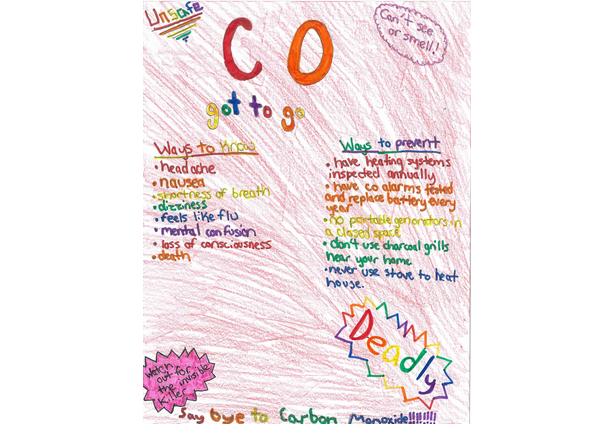 Unsafe
Can't see
or smell!
CO
got to go
Ways to Know
• headache
• nausea
• shortness of breath
• dizziness
• feels like flu
• mental confusion
• loss of consciousness
• death
Ways to prevent
• have heating systems
inspected annually
• have co alarms tested
and replace battery every
year
• no portable generators in
a closed space
• don't use charcoal grills
near your home
• never use stove to heat
house.
Deadly
Watch
out for
the invisible
killer
Say bye to Carbon Monoxide!!!!!!!